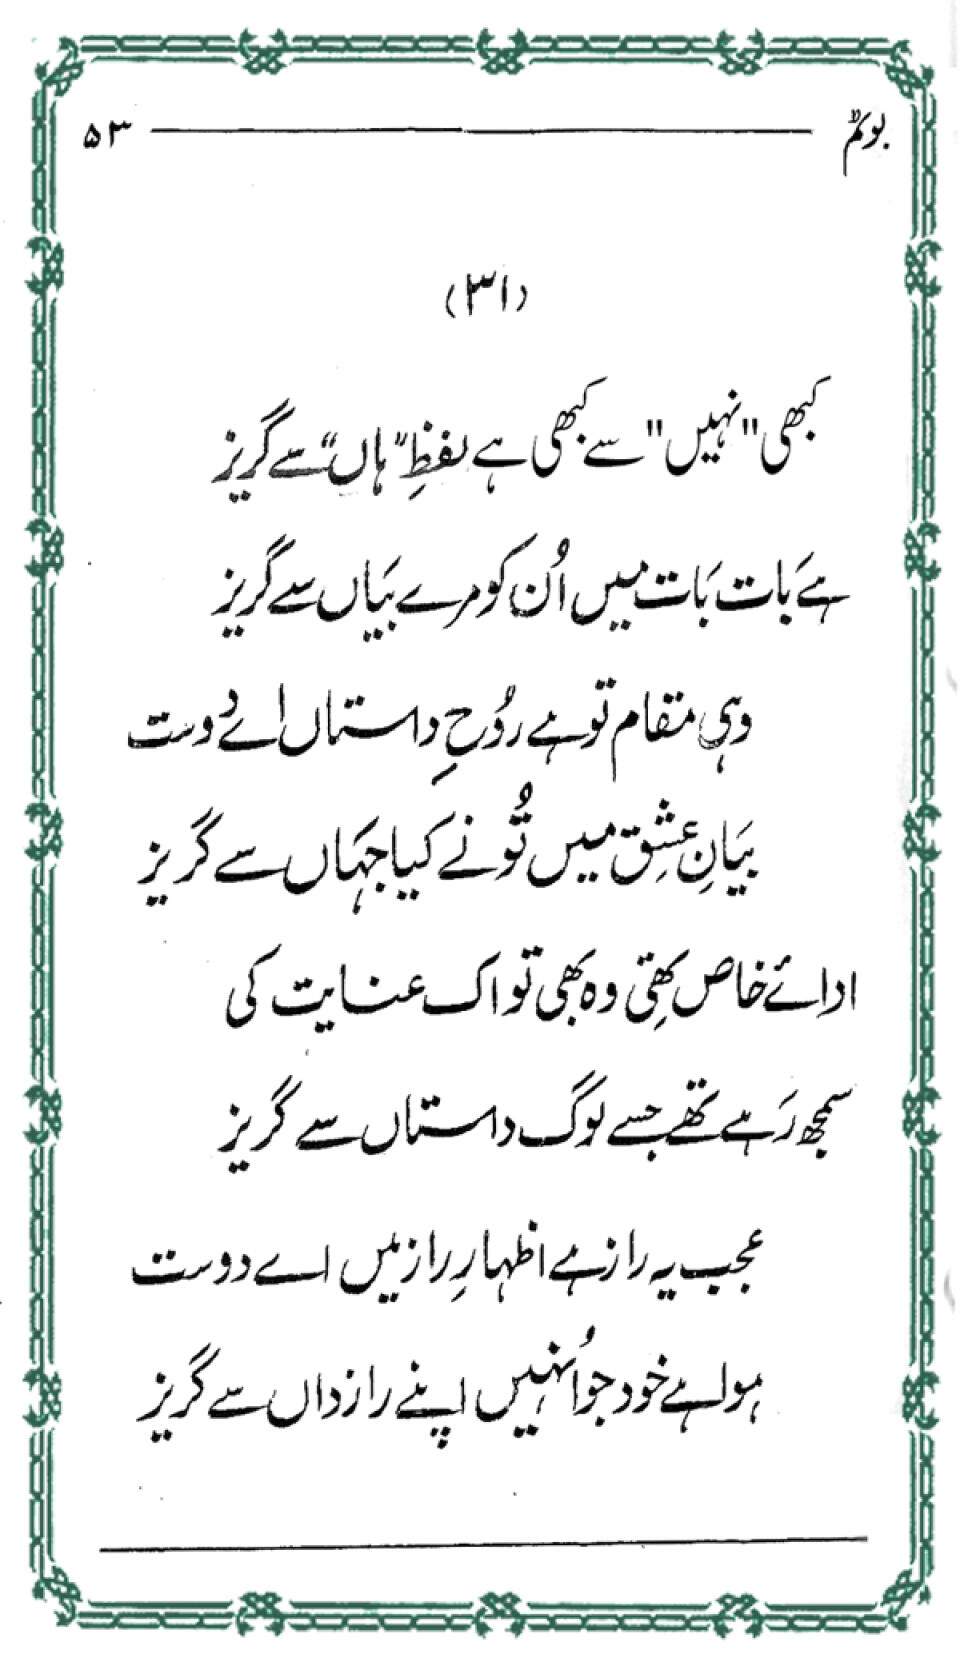 بوئم ۵۳
(۳۱)
کبھی "نہیں" سے کبھی ہے لفظِ "ہاں" سے گریز
ہے بَات بَات میں اُن کو مرے بیَاں سے گریز
وہی مقام تو ہے رُوحِ داستاں اے دوست
بیَانِ عشِق میں تُو نے کیا جہَاں سے گریز
ادائے خاص تھِی وہ بھی تو اک عنایت کی
سمجھ رَہے تھے جسے لوگ داستاں سے گریز
عجب یہ راز ہے اظہارِ راز میں اے دوست
ہوا ہے خود جو اُنہیں اپنے رازداں سے گریز